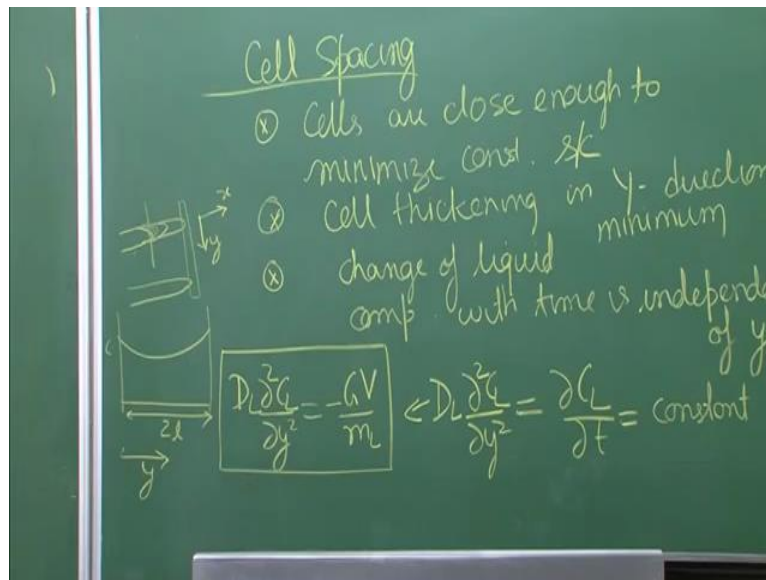 Cell Spacing
ⓧ Cells are close enough to
minimize const. s/c
ⓧ Cell thickening in Y-direction
minimum
ⓧ change of liquid
comp. with time is independe
of y
x
y
2l
y
D_L ∂²C_L/∂y² = -GV/m_L ← D_L ∂²C_L/∂y² = ∂C_L/∂t = constant